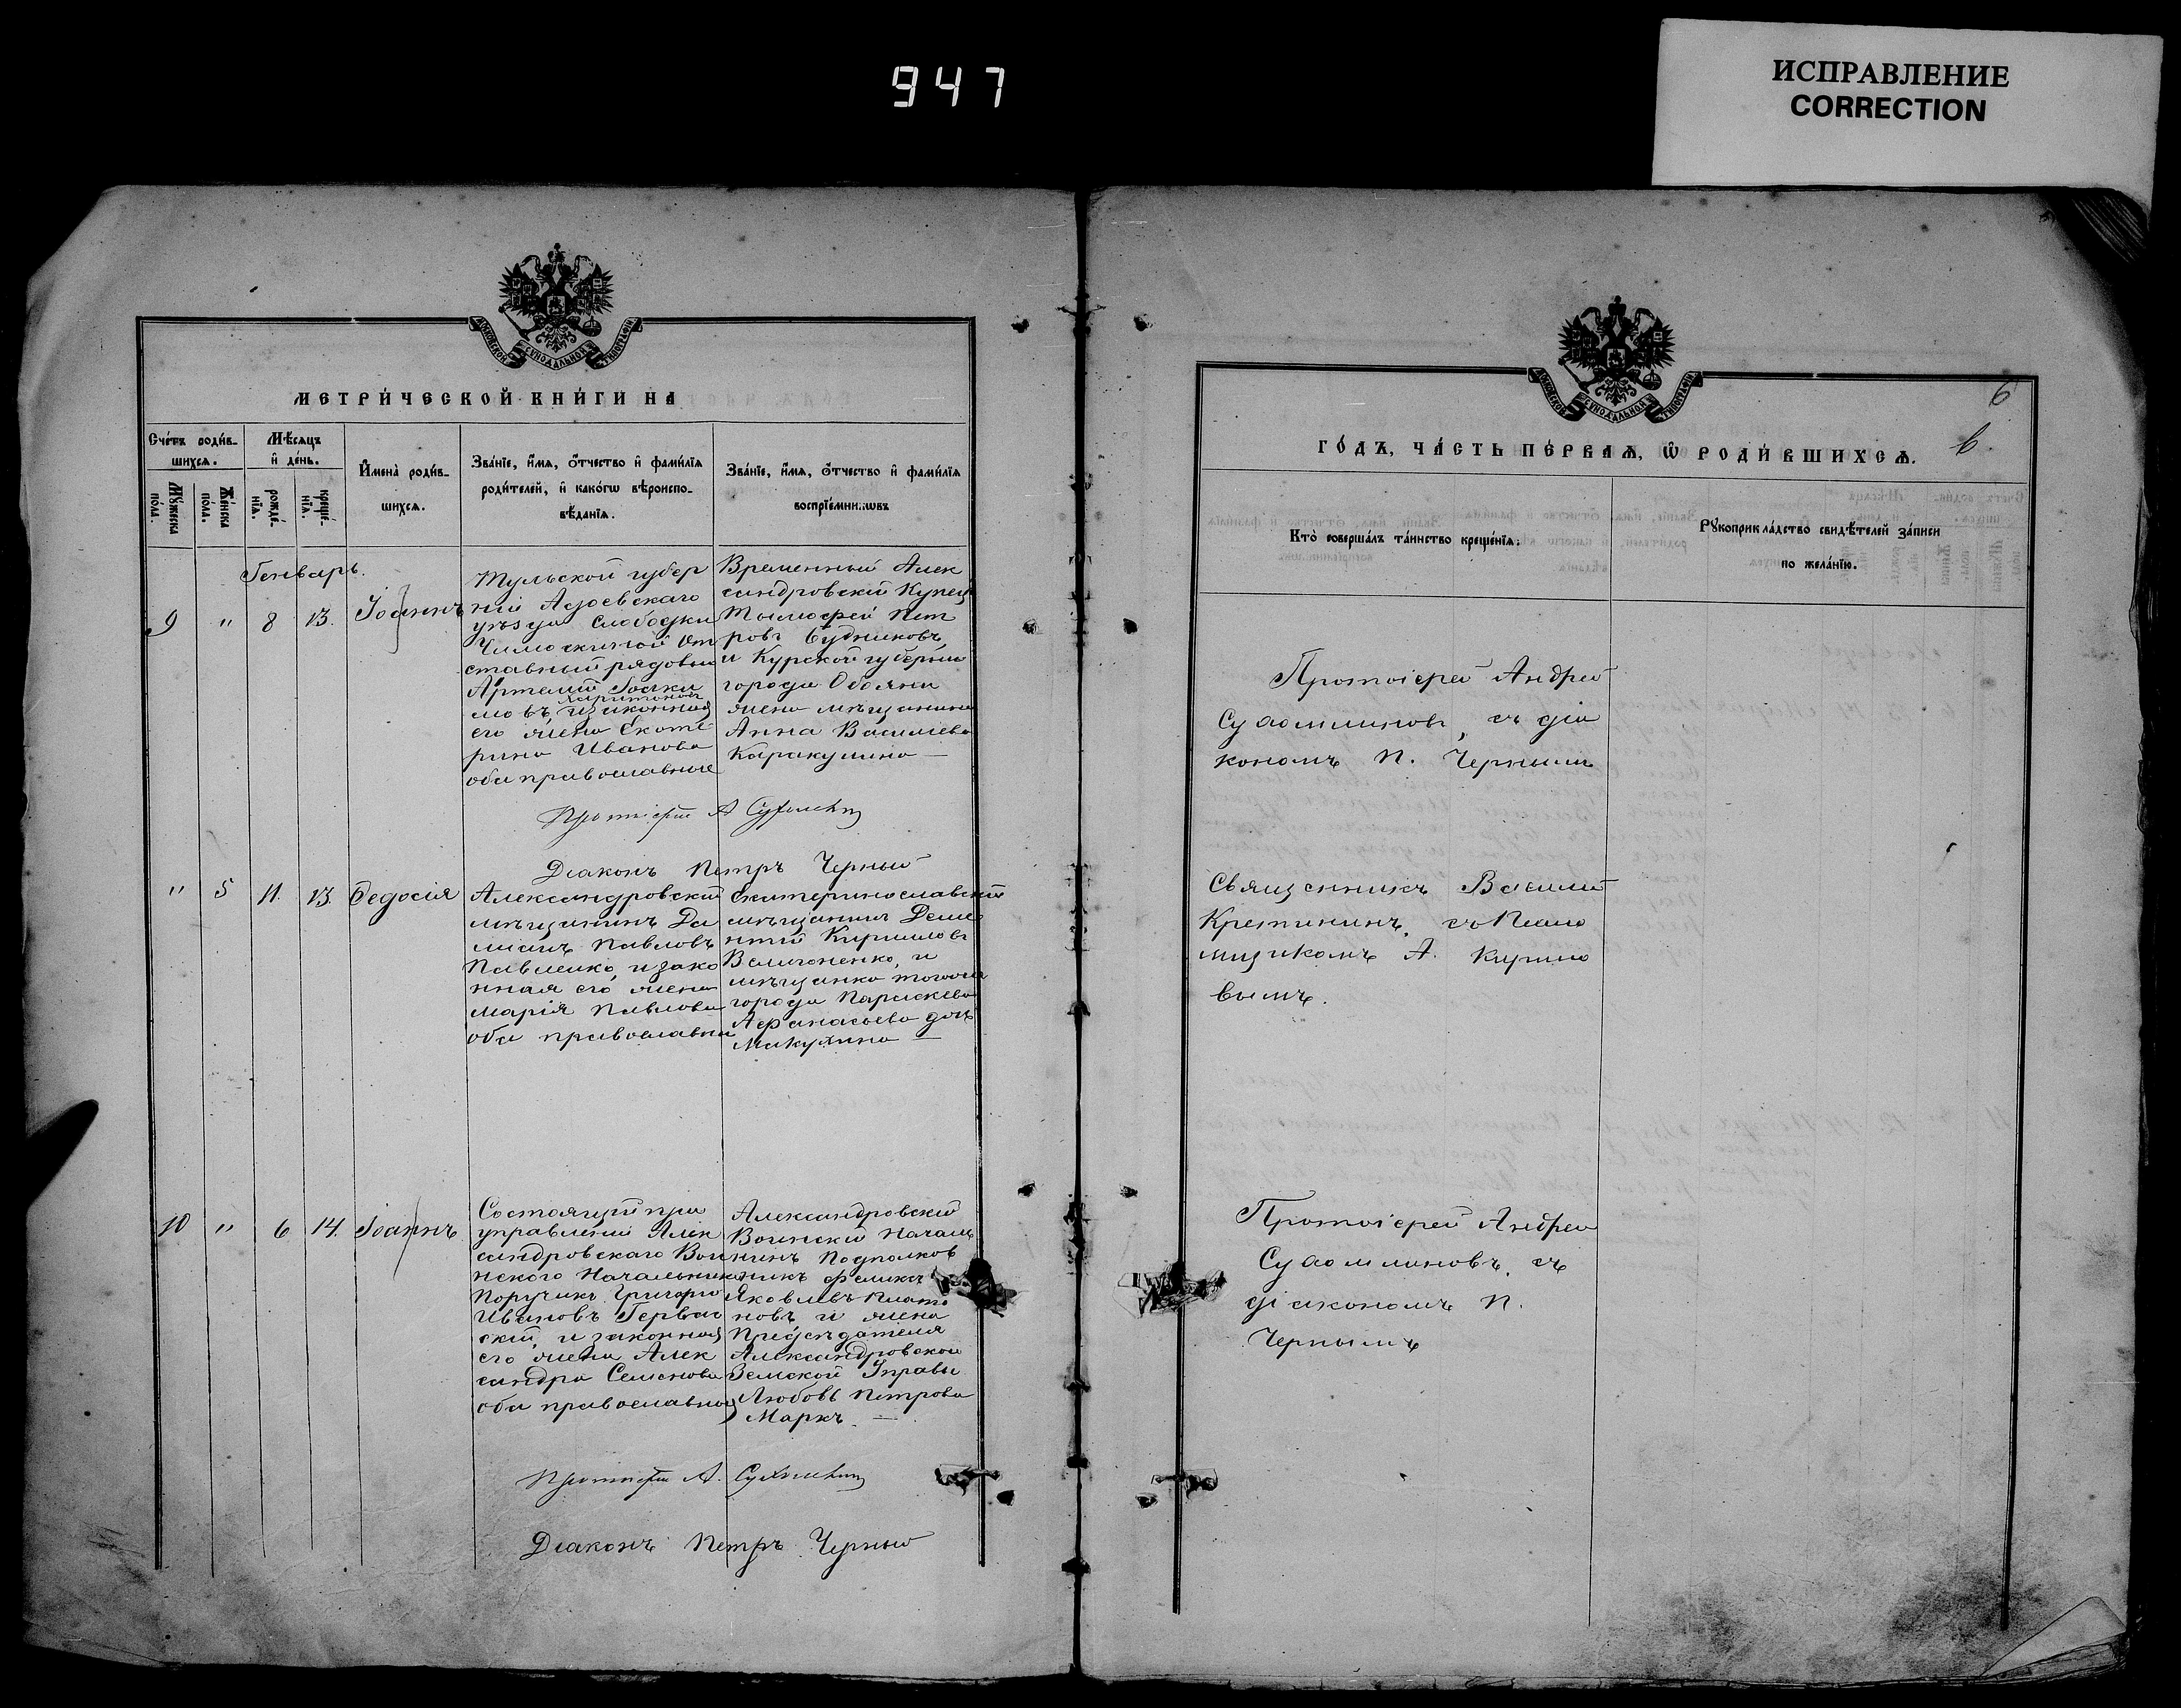 947
ИСПРАВЛЕНИЕ
CORRECTION
МОСКОВСКОЙ СУНОДАЛЬНОЙ ТИПОГРАФІИ
МЕТРИ́ЧЕСКОЙ КНИ́ГИ НА
Сче́тъ роди́в-
шихсѧ.
Мꙋ́жеска
по́ла.
Же́нска
по́ла.
Мѣ́сѧцъ
и҆ де́нь.
рожде́-
нїѧ.
креще́-
нїѧ.
И҆мена̀ роди́в-
шихсѧ.
Зва́нїе, и҆́мѧ, ѻ҆́тчество и҆ фами́лїѧ
роди́телей, и҆ како́гѡ вѣроиспо-
вѣ́данїѧ.
Зва́нїе, и҆́мѧ, ѻ҆́тчество и҆ фами́лїѧ
воспрїе́мникѡвъ
Генварь.
9 " 8 13. Іоаннъ
Тульской губер
ніи Адоевскаго
уѣзда слободки
Отставный рядовый
Артемій
Харитоновъ
изаконная
его жена Екате
рина Иванова
оба православные
Временный Алек
сандровскій Купец
Тымофей Пет
ровъ Будниковъ
и Курской губерніи
города Обояни
жена мѣщанина
Анна Василіева
Каракулина —
Протоіерей А Сухомлин
Діаконъ Петръ Черный
" 5 11. 13. Ѳедосія
Александровскій
мѣщанинъ Да
міанъ Павловъ
Павленко, и зако
нная его жена
Марія Павлова
оба православны
Екатеринославскій
мѣщанинъ Деме
нтій Кириловъ
Велигоненко, и
мѣщанка тогоже
города Параскева
Афанасьева дочь
Микулина —
10 " 6 14. Іоаннъ
Состоящій при
управленіи Алек
сандровскаго Вои
нскаго Начальника
Поручикъ Григорій
Ивановъ
и законная
его жена Алек
сандра Семенова
оба православные
Александровскій
Воинскій Началь
никъ Подполков
никъ Феликсъ
Яковлевъ Плато
новъ и жена
Предсѣдателя
Александровской
Земской Управы
Любовь Петрова
Маркъ. —
Протоіерей А. Сухомлин
Діаконъ Петръ Черный
МОСКОВСКОЙ СУНОДАЛЬНОЙ ТИПОГРАФІИ
6
6.
ГО́ДЪ, ЧА́СТЬ ПЕ́РВАѦ, Ѡ҆ РОДИ́ВШИХСѦ.
Кто̀ соверша́лъ та́инство креще́нїѧ.
Рꙋкоприкла́дство свидѣ́телей за́писи
по жела́нїю.
Протоіерей Андрей
Сухомлиновъ, съ діа
кономъ П. Чернымъ
Священникъ Василій
Кретининъ, съ Псало
мщикомъ А. Кирило
вымъ.
Протоіерей Андрей
Сухомлиновъ, съ
діакономъ П.
Чернымъ